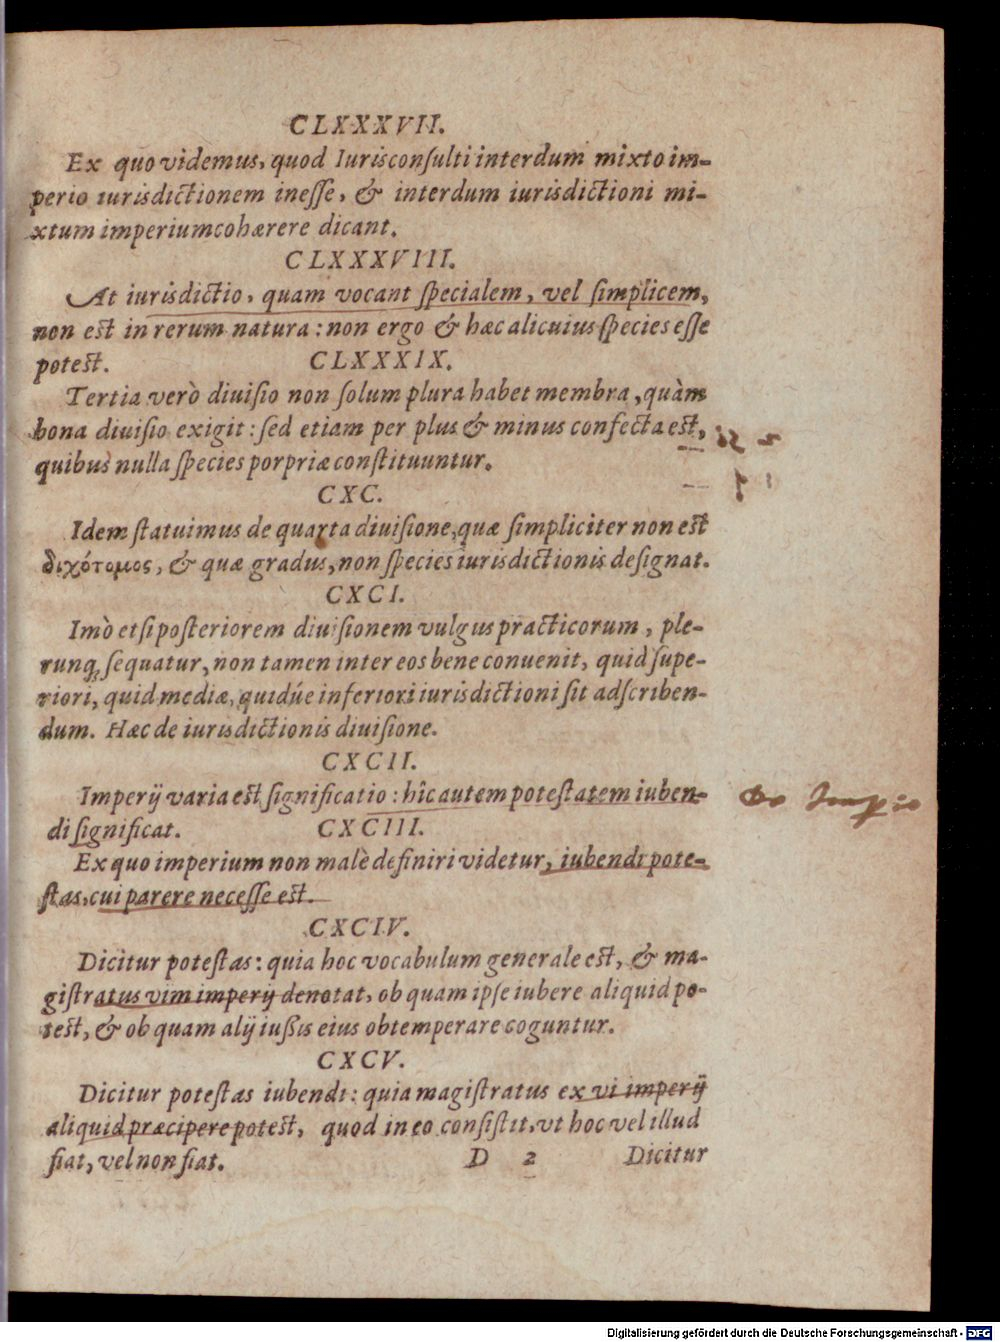 CLXXXVII.
Ex quo videmus, quod Iurisconſulti interdum mixto im-
perio iurisdictionem ineſſe, & interdum iurisdictioni mi-
xtum imperium cohærere dicant.
CLXXXVIII.
At iurisdictio, quam vocant ſpecialem, vel ſimplicem,
non est in rerum natura: non ergo & hæc alicuius ſpecies eſſe
potest. CLXXXIX.
Tertia verò diuiſio non ſolum plura habet membra, quàm
bona diuiſio exigit: ſed etiam per plus & minus confecta est,
quibus nulla ſpecies porpriæ conſtituuntur.
CXC.
Idem ſtatuimus de quarta diuiſione, quæ ſimpliciter non est
διχότομος, & quæ gradus, non ſpecies iurisdictionis deſignat.
CXCI.
Imò etſi poſteriorem diuiſionem vulgus practicorum, ple-
runq; ſequatur, non tamen inter eos bene conuenit, quid ſupe-
riori, quid mediæ, quidúe inferiori iurisdictioni ſit adſcriben-
dum. Hæc de iurisdictionis diuiſione.
CXCII.
Imperij varia est ſignificatio: hîc autem poteſtatem iuben-
di ſignificat. CXCIII.
Ex quo imperium non malè definiri videtur, iubendi pote-
ſtas, cui parere neceſſe est.
CXCIV.
Dicitur poteſtas: quia hoc vocabulum generale est, & ma-
giſtratus vim imperij denotat, ob quam ipſe iubere aliquid po-
test, & ob quam alij iußis eius obtemperare coguntur.
CXCV.
Dicitur poteſtas iubendi: quia magiſtratus ex vi imperij
aliquid præcipere potest, quod in eo conſiſtit, vt hoc vel illud
fiat, vel non fiat. D 2 Dicitur
Digitalisierung gefördert durch die Deutsche Forschungsgemeinschaft - DFG